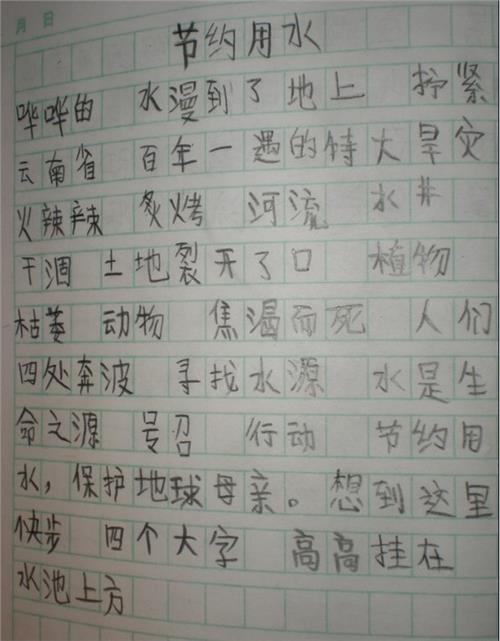 月 日
节约用水
哗哗的 水漫到了地上 拧紧
云南省 百年一遇的特大旱灾
火辣辣 炙烤 河流 水井
干涸 土地裂开了口 植物
枯萎 动物 焦渴而死 人们
四处奔波 寻找水源 水是生
命之源 号召 行动 节约用
水，保护地球母亲。想到这里
快步 四个大字 高高挂在
水池上方